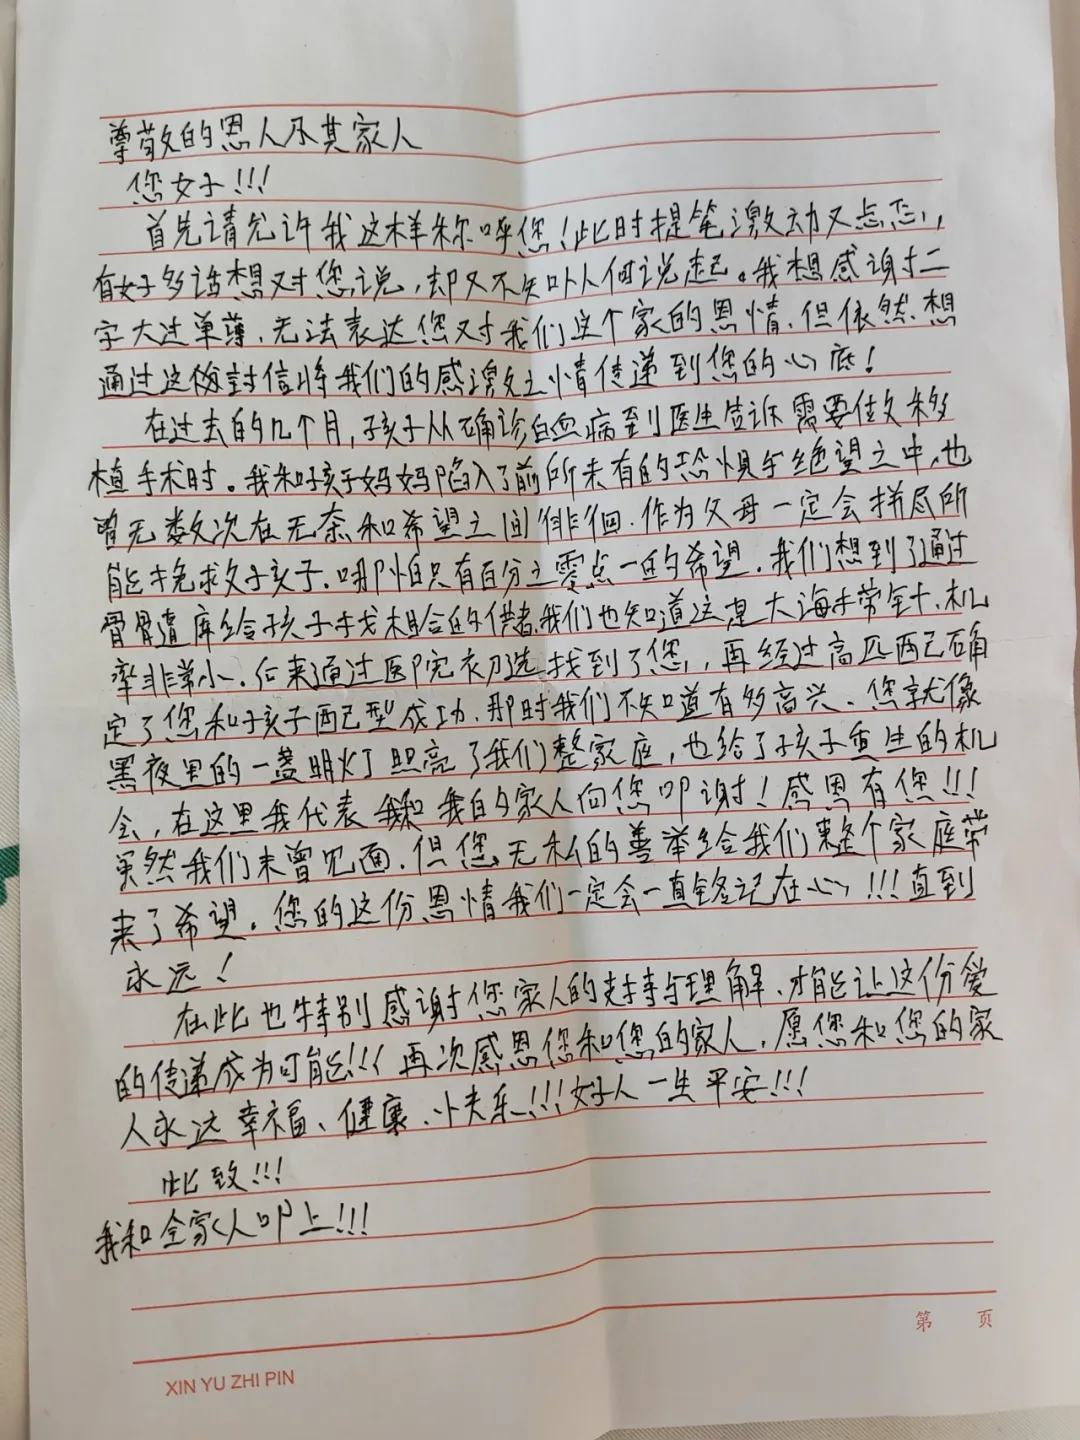 尊敬的恩人及其家人
您好!!!
首先请允许我这样称呼您!此时提笔激动又忐忑,
有好多话想对您说,却又不知从何说起。我想感谢二
字太过单薄.无法表达您对我们这个家的恩情.但依然想
通过这份封信将我们的感激之情传递到您的心底!
在过去的几个月,孩子从确诊白血病到医生告诉需要做移
植手术时。我和孩子妈妈陷入了前所未有的恐惧与绝望之中,也
曾无数次在无奈和希望之间徘徊.作为父母一定会拼尽所
能挽救孩子.哪怕只有百分之零点一的希望.我们想到了通过
骨髓库给孩子寻找相合的供者.我们也知道这是大海捞针.机
率非常小.后来通过医院初选找到了您,再经过高匹配确
定了您和孩子配型成功.那时我们不知道有多高兴.您就像
黑夜里的一盏明灯照亮了我们整家庭,也给了孩子重生的机
会,在这里我代表我和我的家人向您叩谢!感恩有您!!!
虽然我们未曾见面.但您无私的善举给我们整个家庭带
来了希望.您的这份恩情我们一定会一直铭记在心!!!直到
永远!
在此也特别感谢您家人的支持与理解.才能让这份爱
的传递成为可能!!!再次感恩您和您的家人.愿您和您的家
人永远幸福、健康、快乐!!!好人一生平安!!!
此致!!!
我和全家人叩上!!!
第 页
XIN YU ZHI PIN